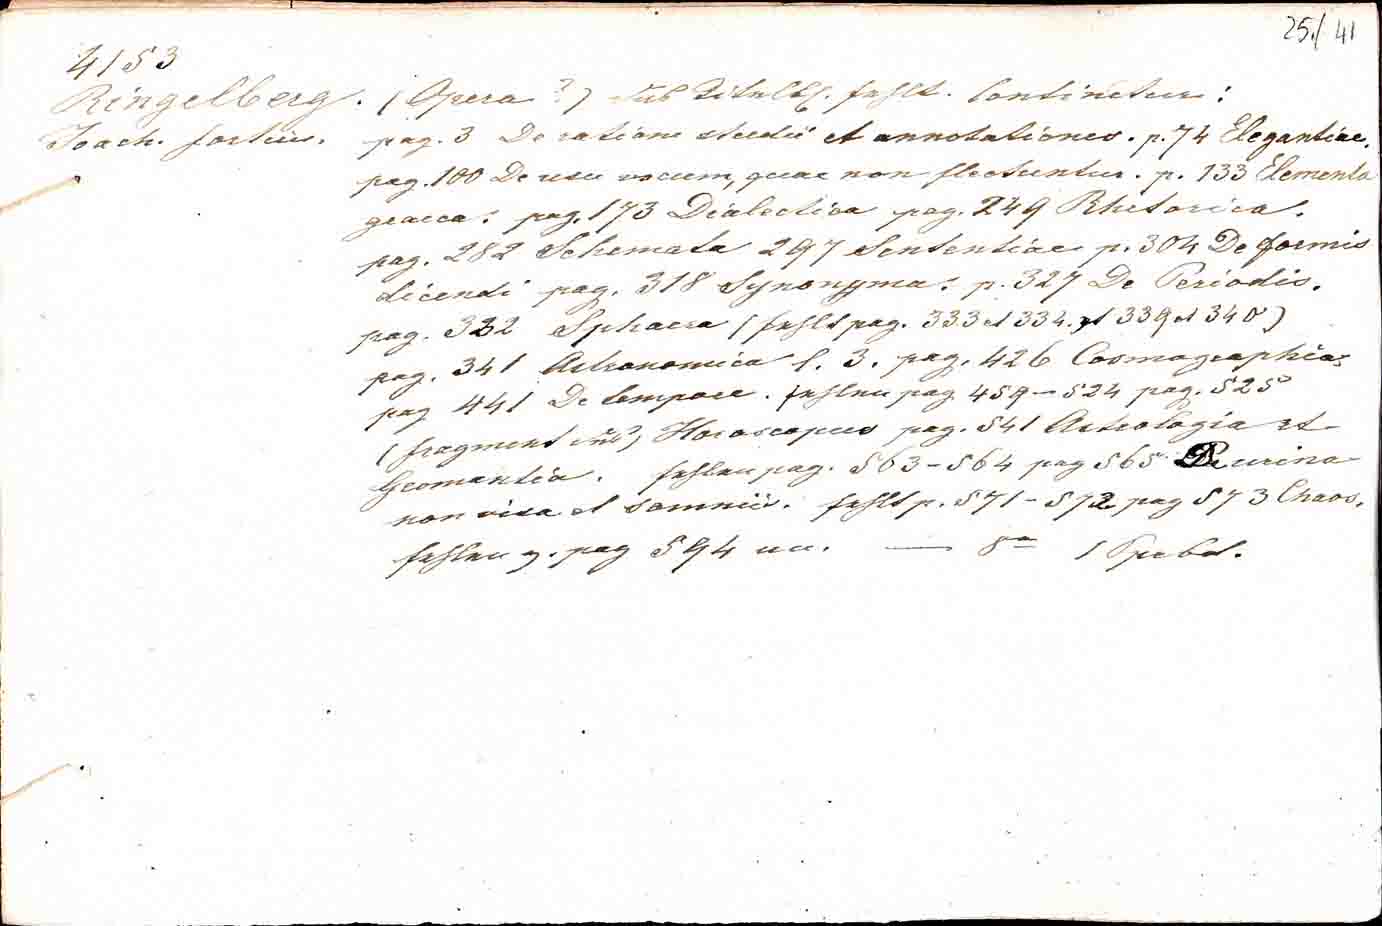 25./41
4153
Ringelberg. (Opera ?) das Titelbl. fehlt. Continetur:
Joach. fortius. pag. 3 De ratione studii et annotationes. p. 74 Elegantiae.
pag. 100 De usu vocum, quae non flectuntur. p. 133 Elementa
graeca. pag. 173 Dialectica pag. 249 Rhetorica.
pag. 282 Schemata 297 Sententiae p. 304 De formis
dicendi pag. 318 Synonyma. p. 327 De Periodis.
pag. 332 Sphaera (fehlt pag. 333 et 334. et 339 et 340)
pag. 341 Astronomica l. 3. pag. 426 Cosmographia
pag 441 De tempore. fehlen pag 459-524 pag. 525
(fragment) Horoscopus pag. 541 Astrologia et
Geomantia. fehlen pag. 563-564 pag 565 De urina
non visa et somniis. fehlt p. 571-572 pag 573 Chaos.
fehlen pag 594 — 8°